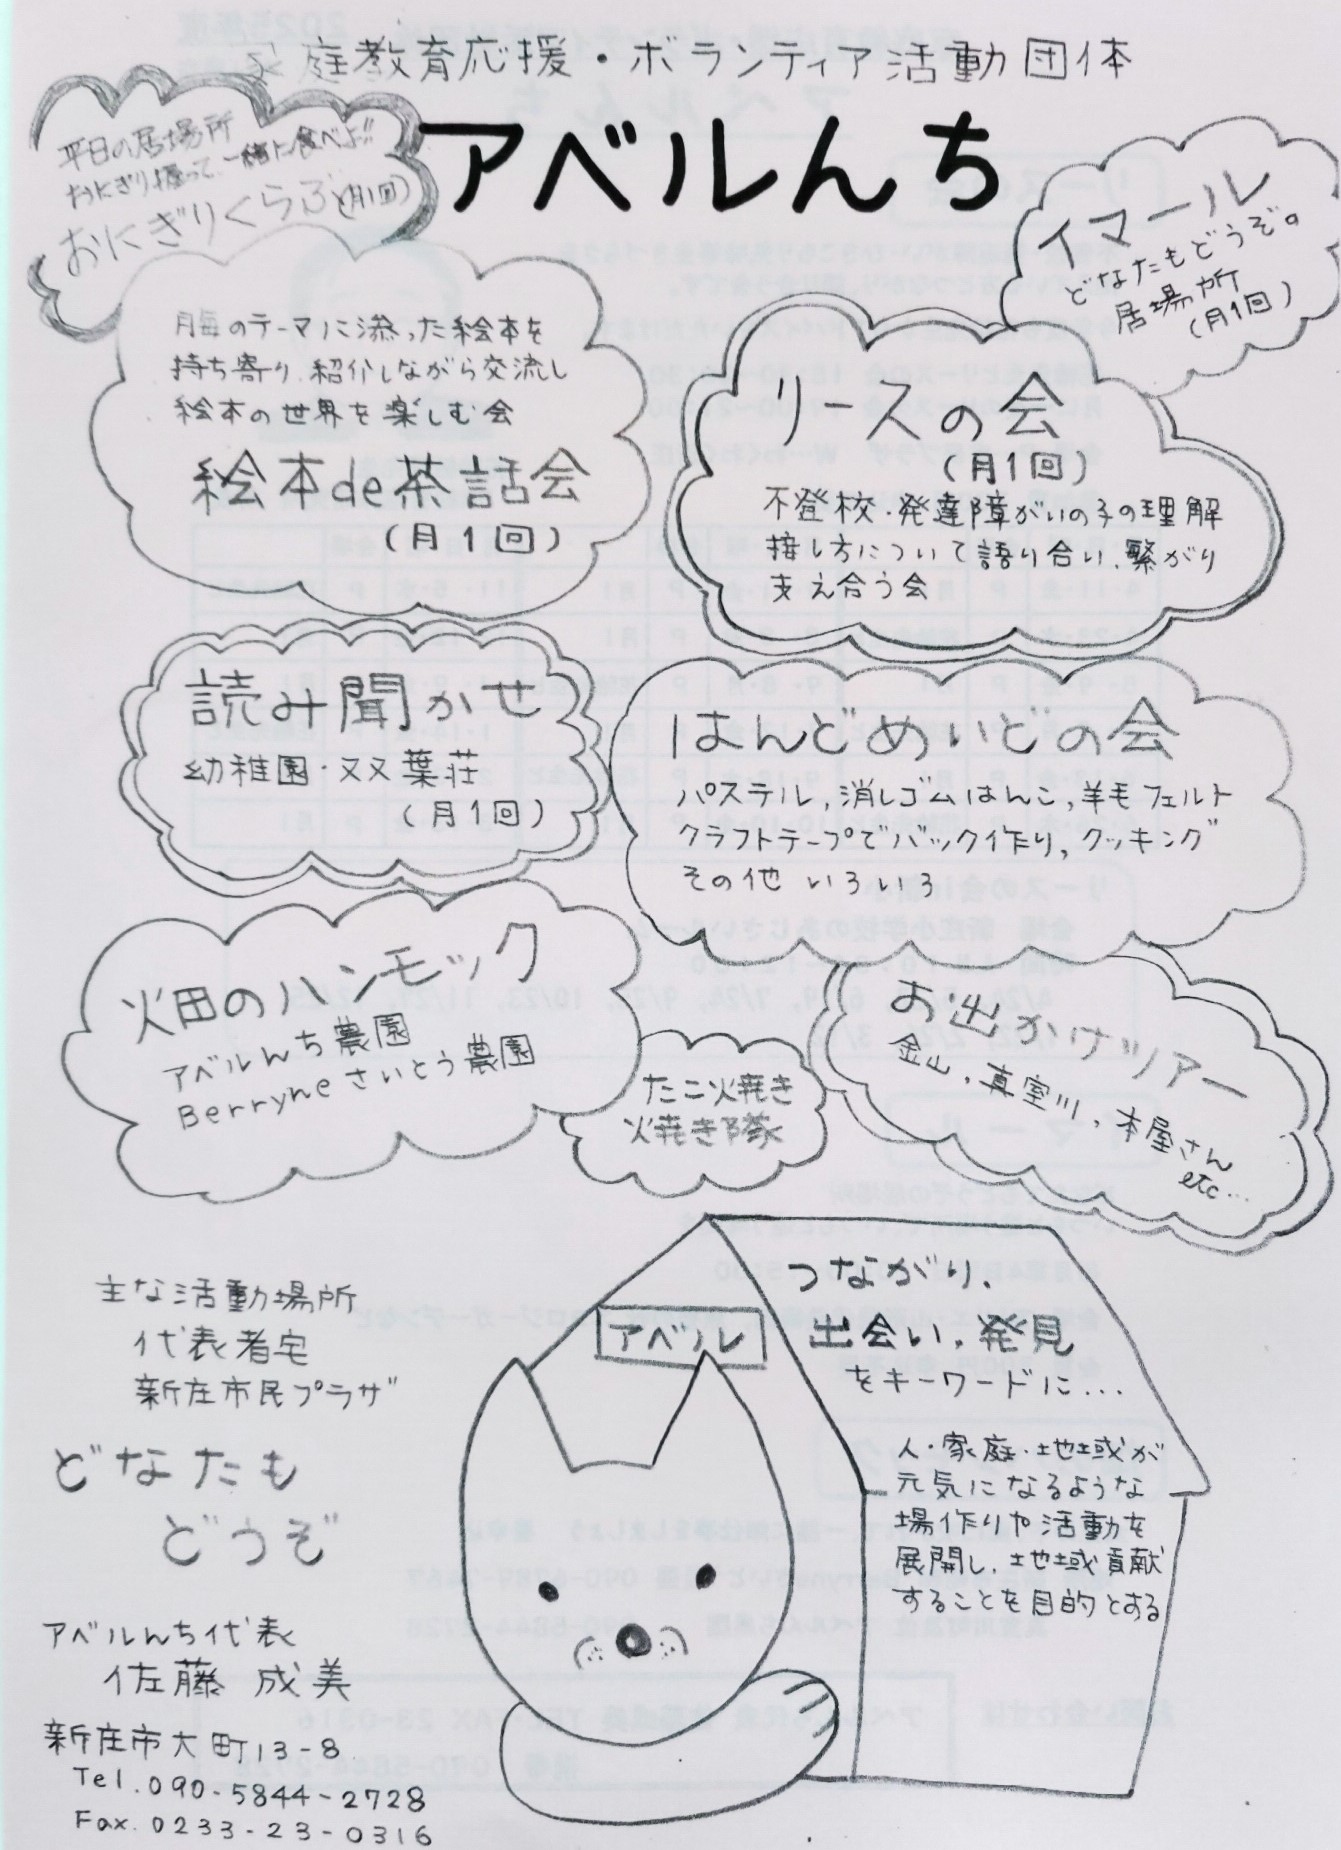 家庭教育応援・ボランティア活動団体
アベルんち
平日の居場所
おにぎり握って、一緒に食べよ!!
おにぎりくらぶ(月1回)
イマール
どなたもどうぞ。
居場所
(月1回)
月毎のテーマに添った絵本を
持ち寄り、紹介しながら交流し
絵本の世界を楽しむ会
絵本de茶話会
(月1回)
リースの会
(月1回)
不登校・発達障がいの子の理解
接し方について語り合い、繋がり
支え合う会
読み聞かせ
幼稚園・双葉荘
(月1回)
はんどめいどの会
パステル,消しゴムはんこ,羊毛フェルト
クラフトテープでバック作り,クッキング
その他 いろいろ
畑のハンモック
アベルんち農園
Berryneさいとう農園
たこ焼き
焼き隊
お出かけツアー
金山,真室川,本屋さん
etc…
主な活動場所
代表者宅
新庄市民プラザ
どなたも
どうぞ
アベルんち代表
佐藤 成美
新庄市大町13-8
Tel.090-5844-2728
Fax.0233-23-0316
アベル
つながり、
出会い,発見
をキーワードに…
人・家庭・地域が
元気になるような
場作りや活動を
展開し、地域貢献
することを目的とする